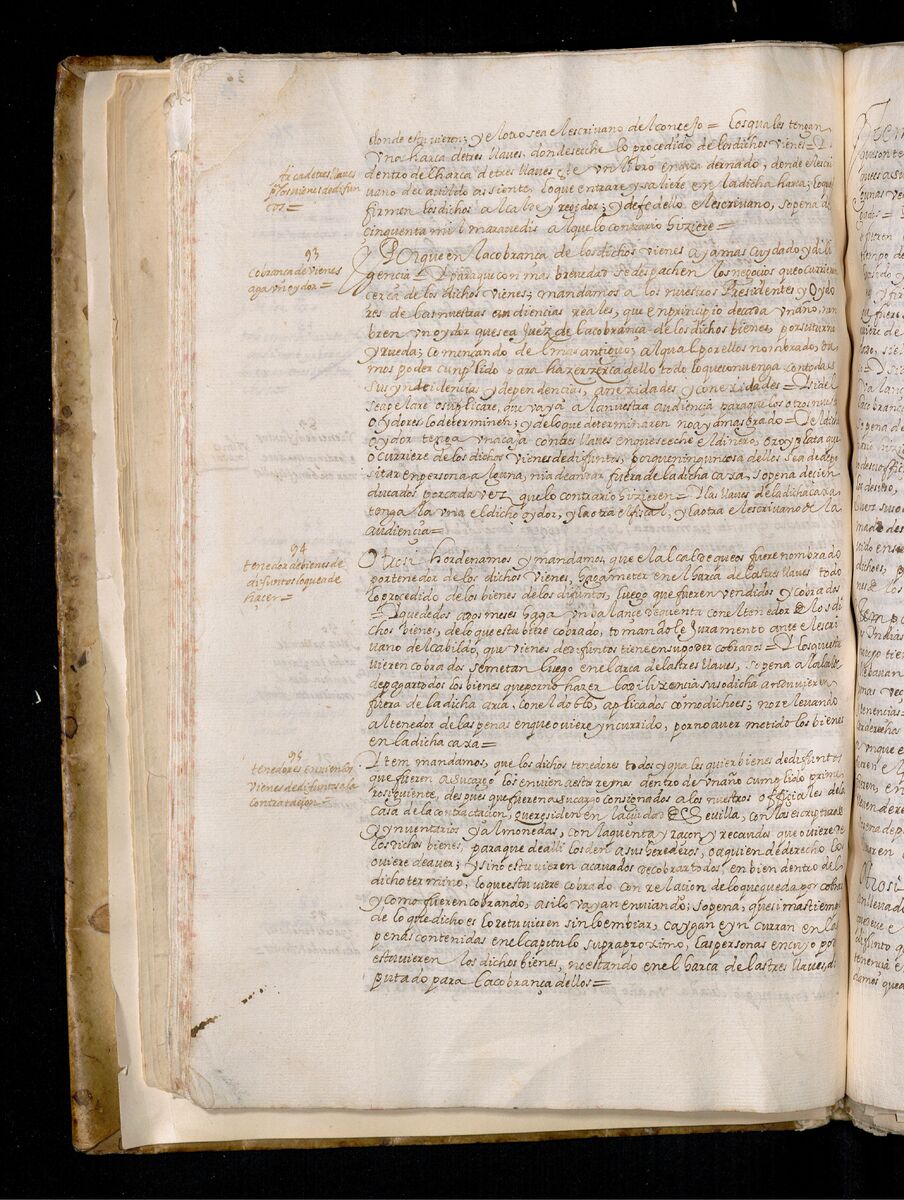 donde estuvieren; y el otro sea el escrivano del concejo = Los quales tengan
Una harca de tres llaves, donde se eche lo procedido de los dichos vienes =
dentro del harca de tres llaves este un libro encuadernado, donde el escri
vano del cavildo asiente, lo que entrare y saliere en la dicha harca; lo que
firmen los dichos alcalde y regidor; y de fe dello el escrivano, so pena de
cinquenta mil maravedis al que lo contrario hiziere =
Arca de tres llaves
p.ª los vienes de difun
tos =
93
Cobranca de vienes
aga un oydor =
Porque en la cobrança de los dichos vienes aya mas cuydado y dili
gencia = Y para que con mas brevedad se despachen los negocios que ocurrieren
cerca de los dichos vienes; mandamos a los nuestros Presidentes y Oydo
res de las nuestras audiencias reales, que en principio de cada un año, nom
bren un oydor que sea Juez de la cobrança de los dichos bienes, por su turno
y rueda; començando del mas antiguo; al qual por ellos nombrado, da
mos poder cumplido para hazer cerca dello todo lo que convenga con todas
sus yncidencias y dependencias, anexidades y conexidades = Y si del
se apelare o suplicare, que vaya a la nuestra audiencia para que los otros nuestros
oydores lo determinen; y de lo que determinaren no aya mas grado = El dicho
oydor tenga una caja con tres llaves en que se eche el dinero, oro y plata que
ocurriere de los dichos vienes de difuntos, porque ninguna cosa dellos sea de depo
sitar en persona alguna, ni a de andar fuera de la dicha caxa, so pena de cien
ducados por cada vez que lo contrario hizieren = Y las llaves de la dicha caxa
tenga la una el dicho oydor, y la otra el fiscal, y la otra el escrivano de la
audiencia =
94
tenedor de bienes de
difuntos lo que a de
haçer =
Otrosi hordenamos y mandamos, que el alcalde que os fuere nombrado
por tenedor de los dichos vienes, haga meter en el harca de las tres llaves todo
lo procedido de los bienes de los difuntos, luego que fueren vendidos y cobrados
= Y que de dos a dos meses haga un valançe de quenta con el tenedor de los di
chos bienes, de lo que estubiere cobrado, tomandole Juramento ante el escri
vano del cabildo, que vienes de difuntos tiene en su poder cobrados = Y los que estu
vieren cobrados se metan luego en el arca de las tres llaves, so pena al alcalde
de pagar todos los bienes que por no hazer la diligencia susodicha anduvieren
fuera de la dicha caxa, con el doblo, aplicados como dicho es; no relevando
al tenedor de las penas en que oviere yncurrido, por no aver metido los bienes
en la dicha caxa =
95
tenedores envien los
vienes de difuntos a la
contratacion =
Item mandamos, que los dichos tenedores todos y qualesquier bienes de difuntos
que fueren a su cargo los envien a estos reynos dentro de un año cumplido prime
ro siguiente, despues que fueren a su cargo consignados a los nuestros officiales de la
casa de la contractacion, que residen en la ciudad de Sevilla, con las escripturas
y ynventarios y almonedas, con la quenta y raçon y recaudos que oviere de
los dichos bienes, para que de alli los den a sus herederos, o a quien de derecho lo
oviere de aver; y si no estuvieren acavados de cobrar todos, enbien dentro del
dicho termino, lo que estuviere cobrado con relacion de lo que queda por cobrar
y como fueren cobrando, asi lo vayan enviando; so pena, que si mas tiempo
de lo que dicho es lo retuvieren sin lo embiar, caygan e yncurran en las
penas contenidas en el capitulo supraproximo, las personas en cuyo poder
estuvieren los dichos bienes, no estando en el harca de las tres llaves, di
putado para la cobrança dellos =